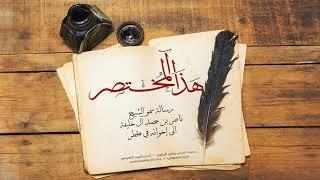 هذا المختصر
رسالة سمو الشيخ
ناصر بن حمد آل خليفة
الى إخوانه في قطر